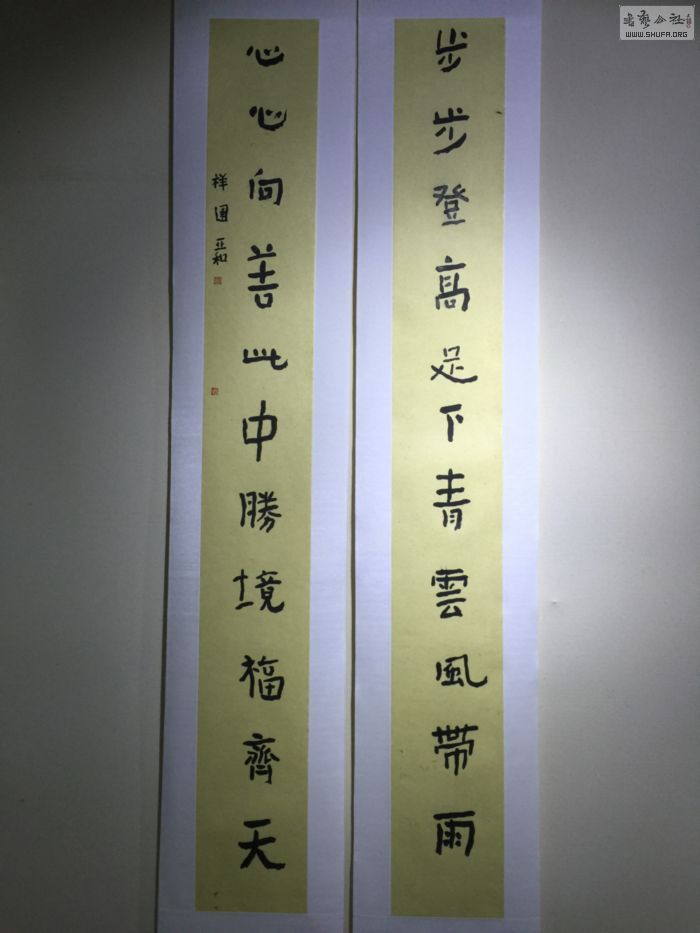 步步登高足下青雲風帶雨
心心向善此中勝境福齊天
祥園 亞和
书艺公社
WWW.SHUFA.ORG